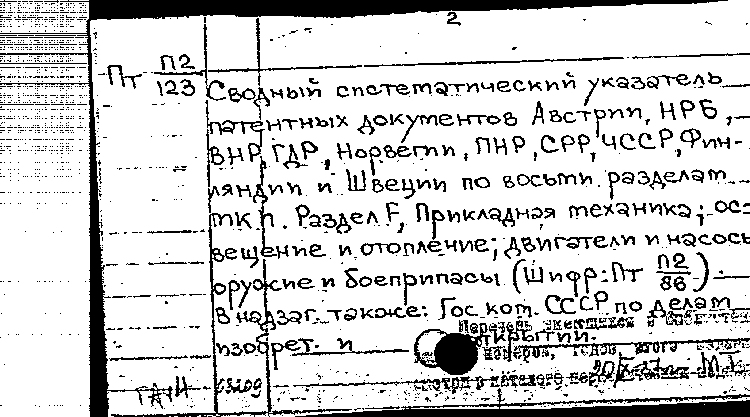 2
Пт П2/123
Сводный систематический указатель
патентных документов Австрии, НРБ,
ВНР, ГДР, Норвегии, ПНР, СРР, ЧССР, Фин-
ляндии и Швеции по восьми разделам
мкп. Раздел F, Прикладная механика; ос-
вещение и отопление; двигатели и насосы
оружие и боеприпасы (Шифр: Пт П2/86).
В надзаг. также: Гос. ком. СССР по делам
изобрет. и открытий.
Перечень имеющихся в
номеров, годов, этого
смотри в каталоге